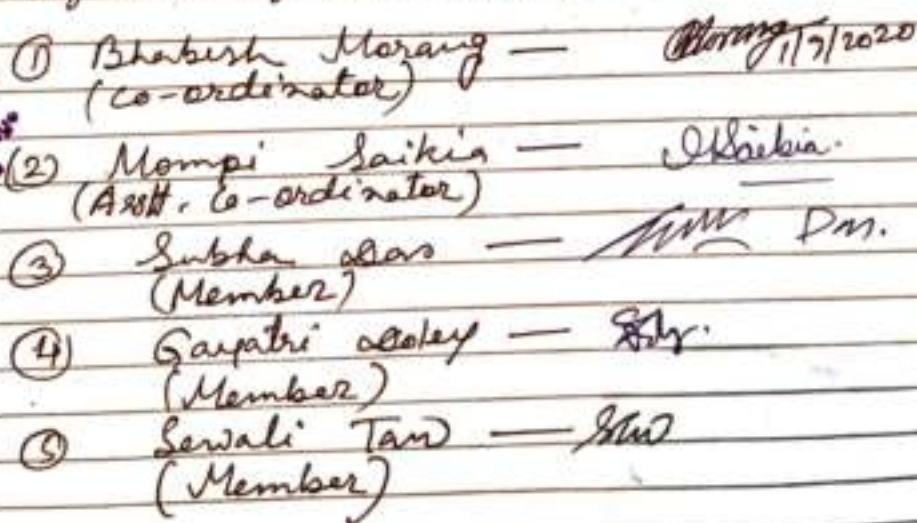 ① Bhabesh Morang — Morang 1/7/2020
(Co-ordinator)
(2) Mompi Saikia — Saikia.
(Asstt. Co-ordinator)
③ Subha Das — Das.
(Member)
④ Gayatri Doley —
(Member)
⑤ Sewali Taw —
(Member)